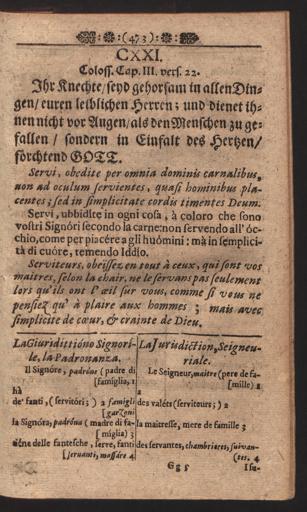 (473)
CXXI.
Coloss. Cap. III. vers. 22.
Ihr Knechte/ seyd gehorsam in allen Din-
gen/ euren leiblichen Herren; und dienet ih-
nen nicht vor Augen/ als den Menschen zu ge-
fallen / sondern in Einfalt des Hertzen/
förchtend GOTT.
Servi, obedite per omnia dominis carnalibus,
non ad oculum servientes, quasi hominibus pla-
centes; sed in simplicitate cordis timentes Deum.
Servi, ubbidite in ogni cosa, à coloro che sono
vostri Signóri secondo la carne: non servendo all' óc-
chio, come per piacére a gli huómini: mà in semplici-
tà di cuóre, temendo Iddío.
Serviteurs, obeïssez en tout à ceux, qui sont vos
maitres, selon la chair. ne le servans pas seulement
lors qu'ils ont l' œil sur vous, comme si vous ne
pensiez qu' à plaire aux hommes ; mais avec
simplicite de cœur, & crainte de Dieu.
La Giuridittióno Signorí-
le, la Padronanza.
Il Signóre, padróne (padre di
[famíglia, 1
hà
de' fanti, (servitóri;) 2 famigli
[garzoni
la Signóra, padróna (madre di fa-
[míglia) 3
tiéne delle fantesche, serve, fanti
[servanti, massáre 4
La Jurisdiction, Seigneu-
riale.
Le Seigneur, maitre (pere de fa-
[mille) 1
des valéts (serviteurs;) 2
la maitresse, mere de famille 3
des servantes, chambriéres, suivan-
(tes. 4
Gg 5